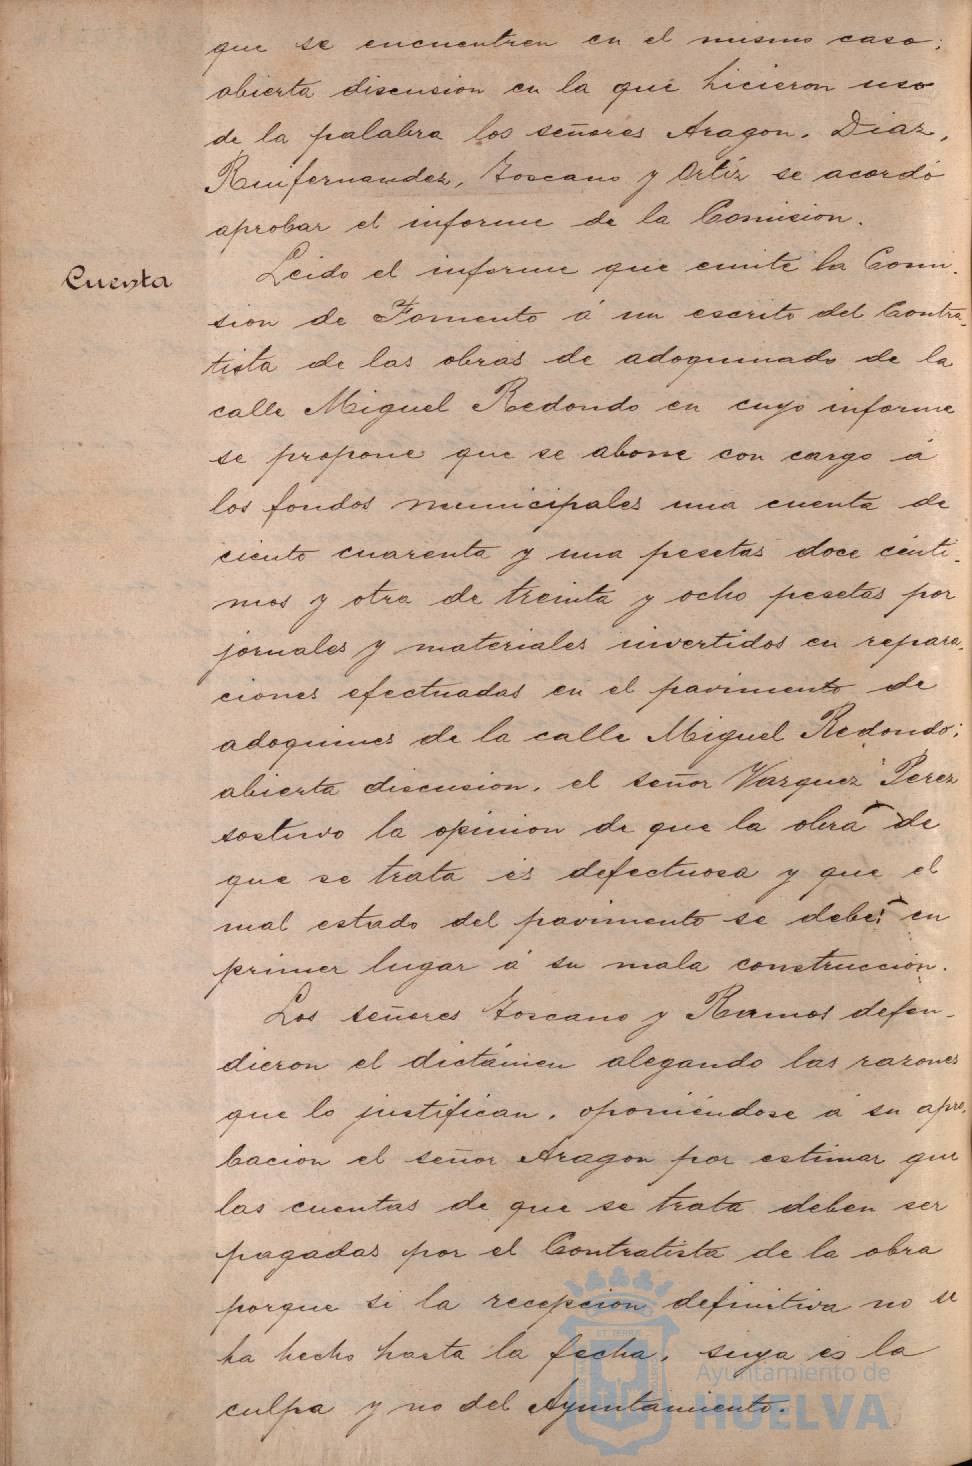 que se encuentren en el mismo caso;
abierta discusion en la que hicieron uso
de la palabra los señores Aragon, Diaz,
Ruifernandez, Toscano y Ortíz se acordó
aprobar el informe de la Comision.
Cuenta
Leido el informe que emite la Comi-
sion de Fomento á un escrito del Contra-
tista de las obras de adoquinado de la
calle Miguel Redondo en cuyo informe
se propone que se abone con cargo á
los fondos municipales una cuenta de
ciento cuarenta y una pesetas doce cénti-
mos y otra de treinta y ocho pesetas por
jornales y materiales invertidos en repara-
ciones efectuadas en el pavimento de
adoquines de la calle Miguel Redondo;
abierta discusion, el señor Vazquez Perez
sostuvo la opinion de que la obra de
que se trata es defectuosa y que el
mal estado del pavimento se debe en
primer lugar á su mala construccion.
Los señores Toscano y Ramos defen-
dieron el dictámen alegando las razones
que lo justifican, oponiéndose á su apro-
bacion el señor Aragon por estimar que
las cuentas de que se trata deben ser
pagadas por el Contratista de la obra
porque si la recepcion definitiva no se
ha hecho hasta la fecha, suya es la
culpa y no del Ayuntamiento.
Ayuntamiento de
HUELVA